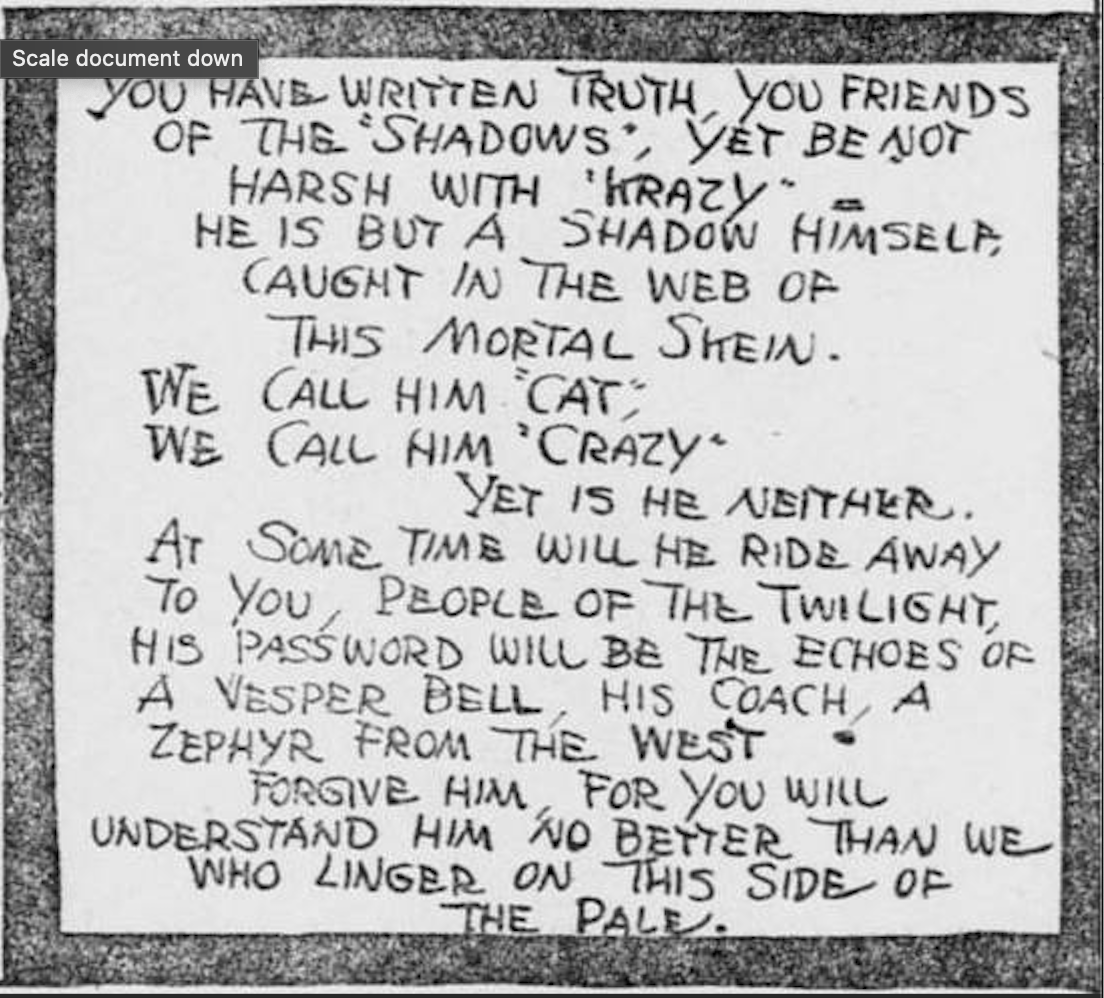 Scale document down
YOU HAVE WRITTEN TRUTH, YOU FRIENDS
OF THE "SHADOWS", YET BE NOT
HARSH WITH "KRAZY" =
HE IS BUT A SHADOW HIMSELF,
CAUGHT IN THE WEB OF
THIS MORTAL SKEIN.
WE CALL HIM "CAT,"
WE CALL HIM "CRAZY"
YET IS HE NEITHER.
AT SOME TIME WILL HE RIDE AWAY
TO YOU, PEOPLE OF THE TWILIGHT,
HIS PASSWORD WILL BE THE ECHOES OF
A VESPER BELL, HIS COACH, A
ZEPHYR FROM THE WEST.
FORGIVE HIM, FOR YOU WILL
UNDERSTAND HIM NO BETTER THAN WE
WHO LINGER ON THIS SIDE OF
THE PALE.